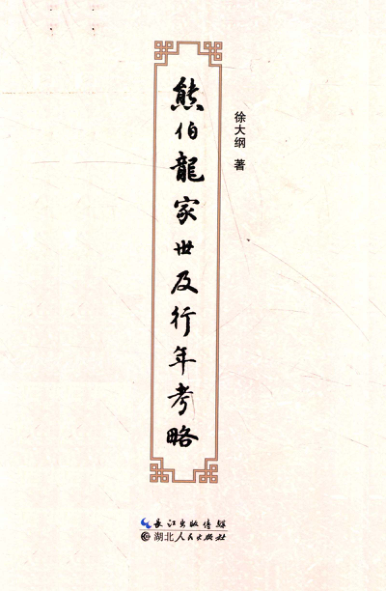 熊伯龍家世及行年考略
徐大纲 著
长江出版传媒
湖北人民出版社